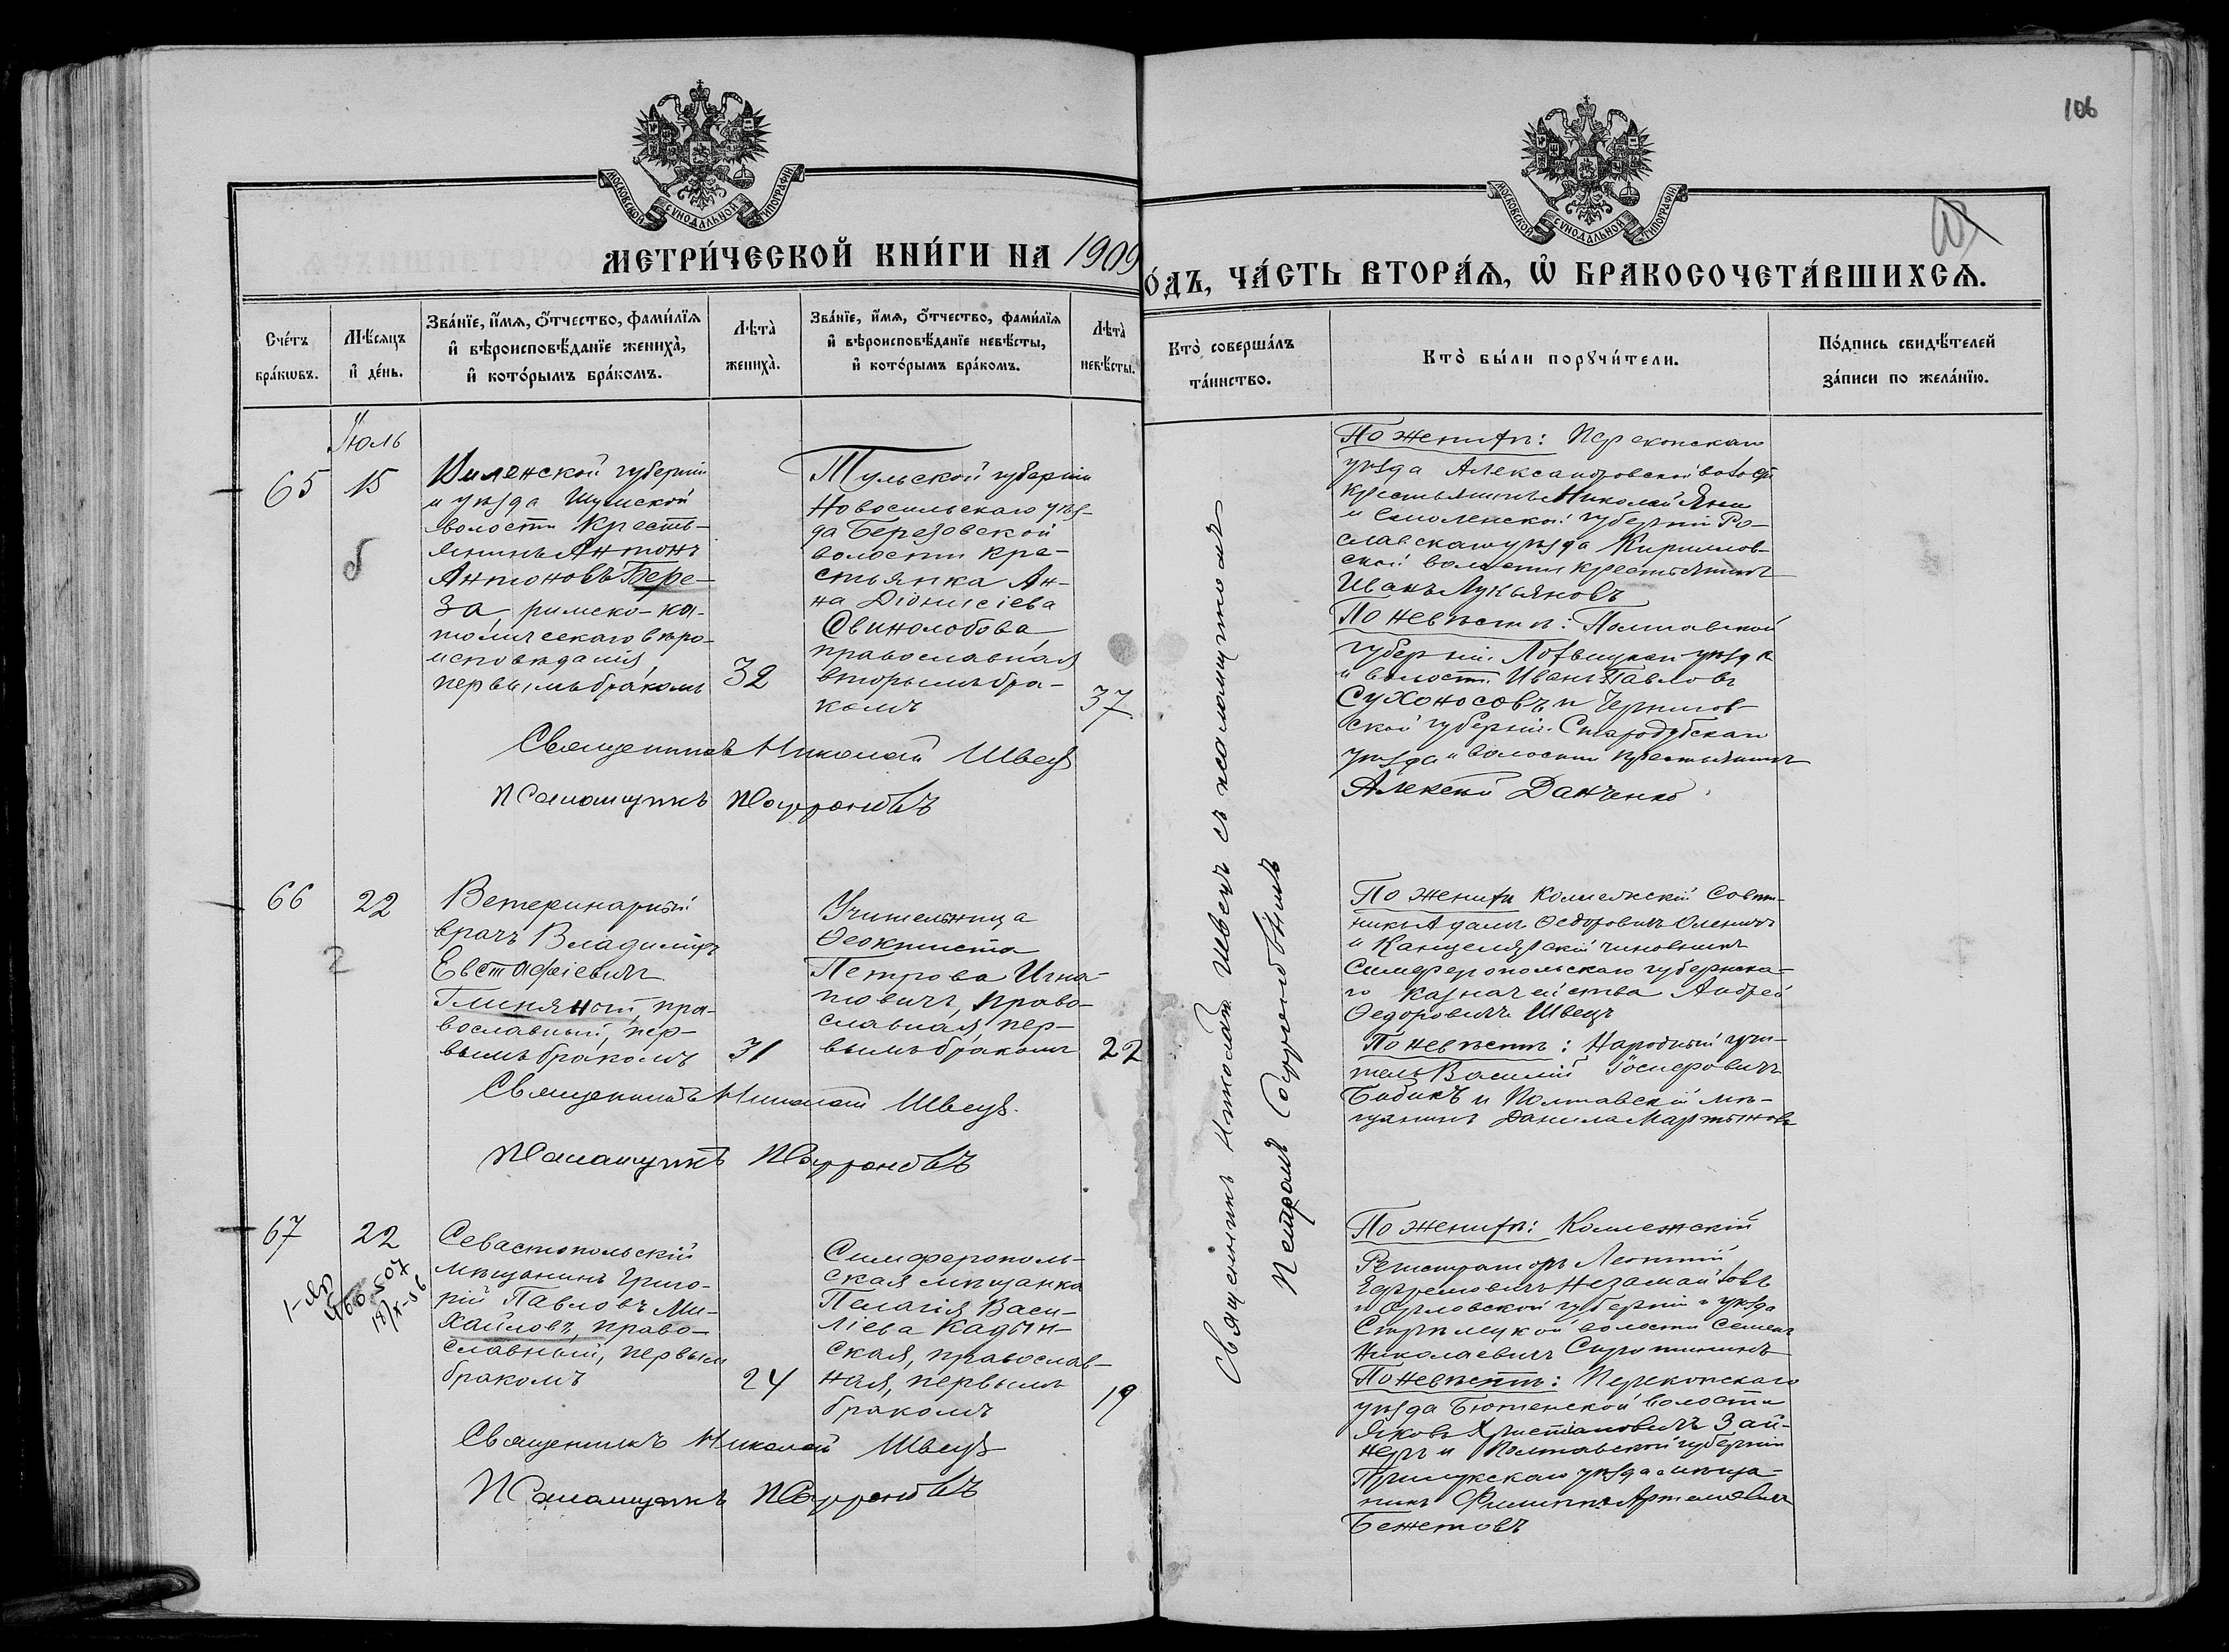 106
МОСКОВСКОЙ СУНОДАЛЬНОЙ ТИПОГРАФІИ
МОСКОВСКОЙ СУНОДАЛЬНОЙ ТИПОГРАФІИ
МЕТРИ́ЧЕСКОЙ КНИ́ГИ НА 1909
О́ДЪ, ЧА́СТЬ ВТОРА́Ѧ, Ѡ҆ БРАКОСОЧЕТА́ВШИХСѦ.
Сче́тъ бра́кѡвъ.
Мѣ́сѧцъ и҆ де́нь.
Зва́нїе, и҆́мѧ, ѻ҆́тчество, фами́лїѧ и҆ вѣроисповѣ́данїе жениха̀, и҆ кото́рымъ бра́комъ.
Лѣта̀ жениха̀.
Зва́нїе, и҆́мѧ, ѻ҆́тчество, фами́лїѧ и҆ вѣроисповѣ́данїе невѣ́сты, и҆ кото́рымъ бра́комъ.
Лѣта̀ невѣ́сты.
Кто̀ соверша́лъ та́инство.
Кто̀ бы́ли порꙋчи́тели.
По́дпись свидѣ́телей за́писи по жела́нїю.
Іюль
65
15
Виленской губерніи
и уѣзда Шумской
волости кресть-
янинъ Антонъ
Антоновъ Бере-
за, римско-ка-
толическаго вѣро-
исповѣданія,
первымъ бракомъ
32
Тульской губерніи
Новосильскаго уѣз-
да Березовской
волости кре-
стьянка Ан-
на Діонисіева
Свинолобова,
православная
вторымъ бра-
комъ
37
Священникъ Николай Швецъ
Псаломщикъ
По женихѣ: Перекопскаго
уѣзда Александровской волости
крестьянинъ Николай Яни
и Смоленской губерніи Ро-
славскаго уѣзда Кириллов-
ской волости крестьянинъ
Иванъ Лукьяновъ
По невѣстѣ: Полтавской
губерніи Лохвицкаго уѣзда
и волости Иванъ Павловъ
Сухоносовъ и Чернигов-
ской губерніи Стародубскаго
уѣзда и волости крестьянинъ
Алексѣй Данченко
66
22
2
Ветеринарный
врачъ Владиміръ
Евстафіевичъ
Глиняный, пра-
вославный, пер-
вымъ бракомъ
31
Учительница
Ѳеоктиста
Петрова Игна-
товичъ, право-
славная, пер-
вымъ бракомъ
22
Священникъ Николай Швецъ.
Псаломщикъ
По женихѣ Коллежскій Совѣт-
никъ Адамъ Ѳедоровичъ
и Канцелярскій чиновникъ
Симферопольскаго губернска-
го казначейства Андрей
Ѳедоровичъ Швецъ
По невѣстѣ: Народный учи-
тель Василій Іосифовичъ
Бабикъ и Полтавскій мѣ-
щанинъ Данила Мартыновъ
67
22
Севастопольскій
мѣщанинъ Григо-
рій Павловъ Ми-
хайловъ, право-
славный, первымъ
бракомъ
24
Симферополь-
ская мѣщанка
Пелагія Васи-
ліева Кадын-
ская, православ-
ная, первымъ
бракомъ
19
Священникъ Николай Швецъ
Псаломщикъ
По женихѣ: Коллежскій
Регистраторъ Леонтій
Ефремовичъ Незамайковъ
и Орловской губерніи и уѣзда
Стрѣлецкой волости Семенъ
Николаевичъ Сиротининъ
По невѣстѣ: Перекопскаго
уѣзда Бютенской волости
Яковъ Христіановичъ Зай-
неръ и Полтавской губерніи
Прилукскаго уѣзда мѣща-
нинъ Филиппъ Артемьевичъ
Бежетовъ
Священникъ Николай Швецъ съ псаломщикомъ
Петромъ